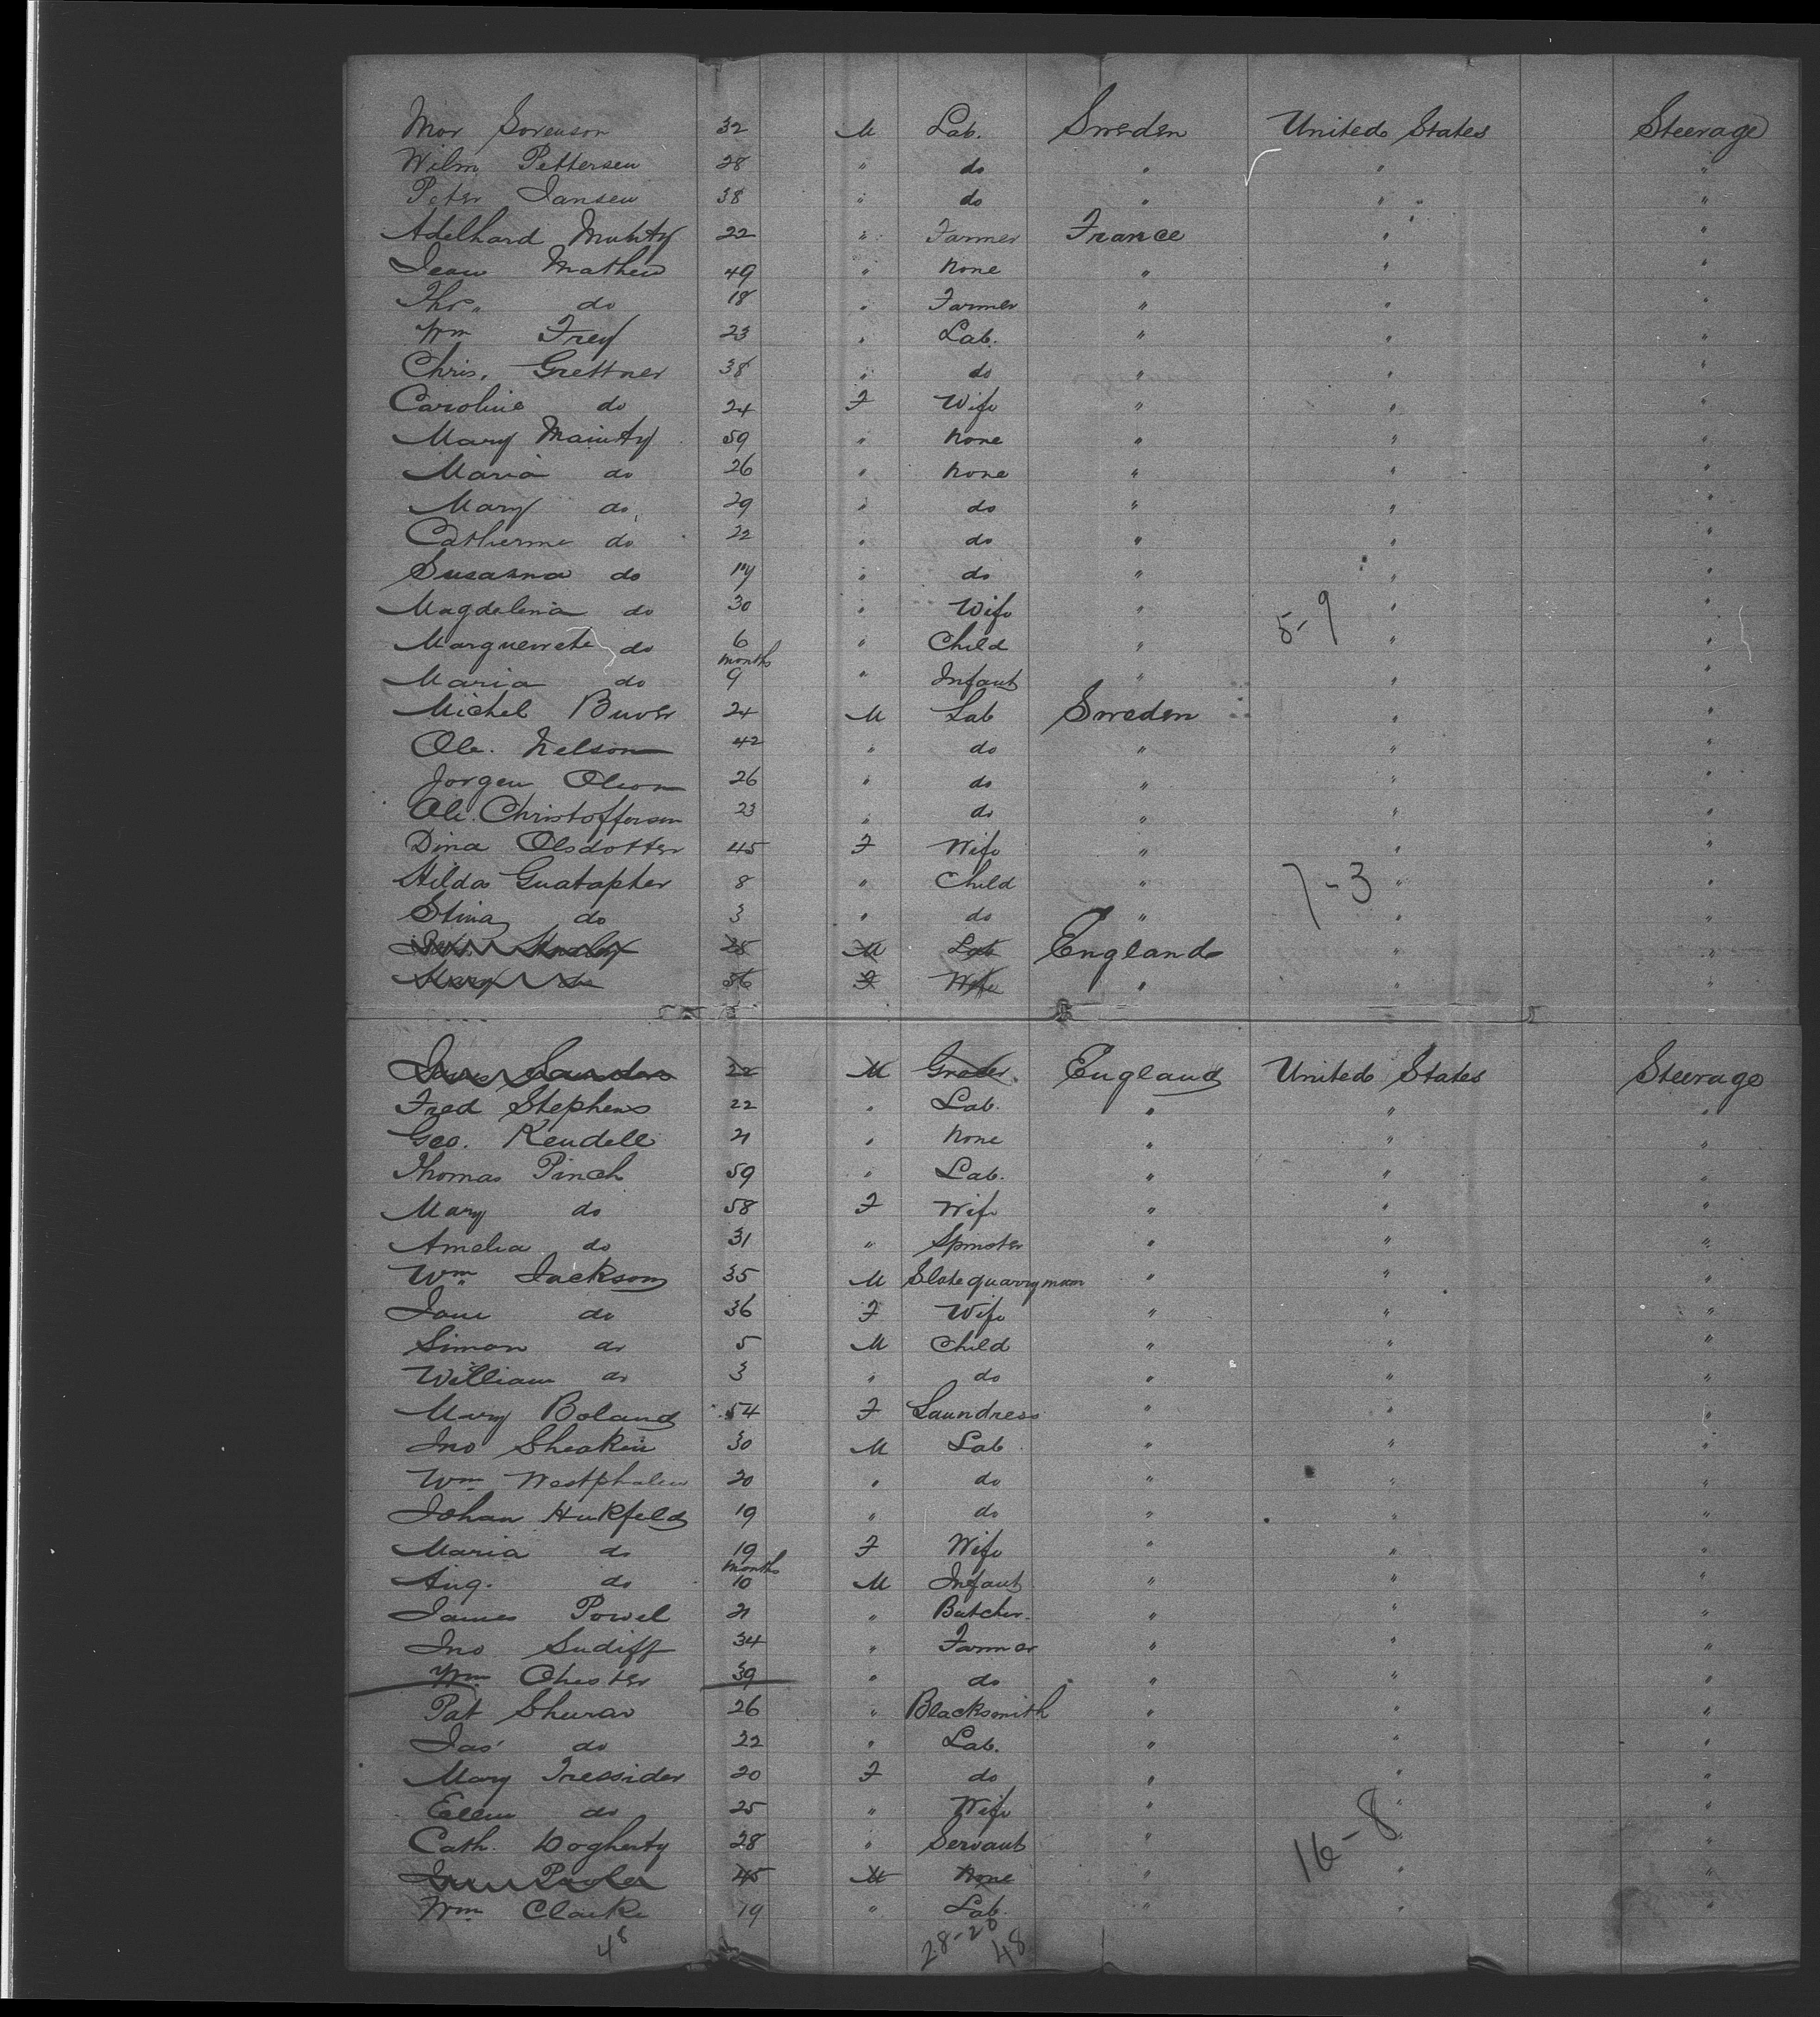 Mor Sorenson 32 M Lab. Sweden United States Steerage
Wilm Pettersen 28 " do " " "
Peter Jansen 38 " do " " "
Adelhard 22 " Farmer France " "
Jean Mathew 49 " None " " "
Thos. do 18 " Farmer " " "
Wm Frey 23 " Lab. " " "
Chris. Grettner 38 " do " " "
Caroline do 24 F Wife " " "
Mary Mainty 59 " None " " "
Maria do 26 " None " " "
Mary do 29 " do " " "
Catherine do 22 " do " " "
Susanna do 17 " do " " "
Magdelena do 30 " Wife " 5-9 " "
Marguerete do 6 " Child " " "
Maria do months 9 " Infant " " "
Michel Buver 24 M Lab Sweden " "
Ole. Nelson 42 " do " " "
Jorgen Olson 26 " do " " "
Ole. Christofferson 23 " do " " "
Dina Olsdotter 45 F Wife " " "
Hilda Guatapher 8 " Child " 7-3 " "
Stina do 3 " do " " "
M Lab England " "
Mary do 56 F Wife " " "
Saunders 22 M England United States Steerage
Fred Stephens 22 " Lab. " " "
Geo. Kendell 21 " None " " "
Thomas Pinch 59 " Lab. " " "
Mary do 58 F Wife " " "
Amelia do 31 " Spinster " " "
Wm Jackson 35 M Slate quarryman " " "
Jane do 36 F Wife " " "
Simon do 5 M Child " " "
William do 3 " do " " "
Mary Boland 54 F Laundress " " "
Jno Sheakin 30 M Lab " " "
Wm Westphalen 20 " do " " "
Johan Hukfeld 19 " do " " "
Maria do 19 F Wife " " "
Aug. do months 10 M Infant " " "
James Powel 21 " Butcher. " " "
Jno Sudiff 34 " Farmer " " "
Wm Chester 39 " do " " "
Pat Shuran 26 " Blacksmith " " "
Jas do 22 " Lab. " " "
Mary Tressider 20 F do " " "
Ellen do 25 " Wife " " "
Cath. Dogherty 28 " Servant " 16-8 " "
45 M None " " "
Wm Clarke 19 " Lab. " " "
48 28-20 48